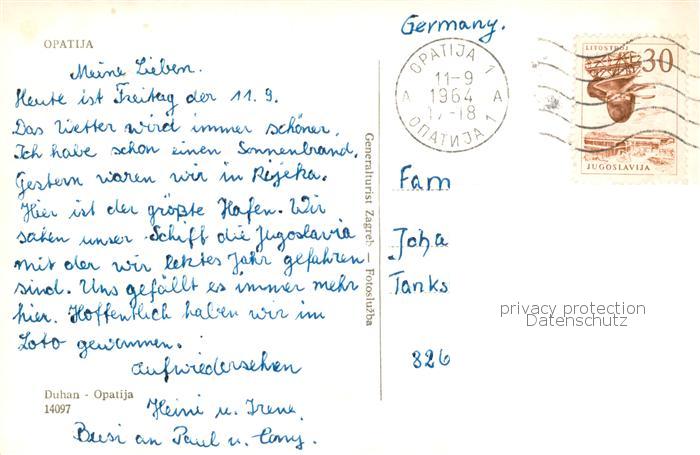 Germany.
OPATIJA
LITOSTROJ
30
OPATIJA 1
11-9
1964
A A
17-18
ОПАТИЈА 1
JUGOSLAVIJA
Meine Lieben.
Heute ist Freitag der 11. 9.
Das Wetter wird immer schöner.
Ich habe schon einen Sonnenbrand.
Gestern waren wir in Rijeka.
Hier ist der größte Hafen. Wir
sahen unser Schiff die Jugoslavia
mit der wir letztes Jahr gefahren
sind. Uns gefällt es immer mehr
hier. Hoffentlich haben wir im
Loto gewonnen.
Aufwiedersehen
Heini u. Irene.
Busi an Paul u. Conny.
Duhan - Opatija
14097
Generalturist Zagreb — Fotoslužba
Fam
Joha
Tanks
826
privacy protection
Datenschutz